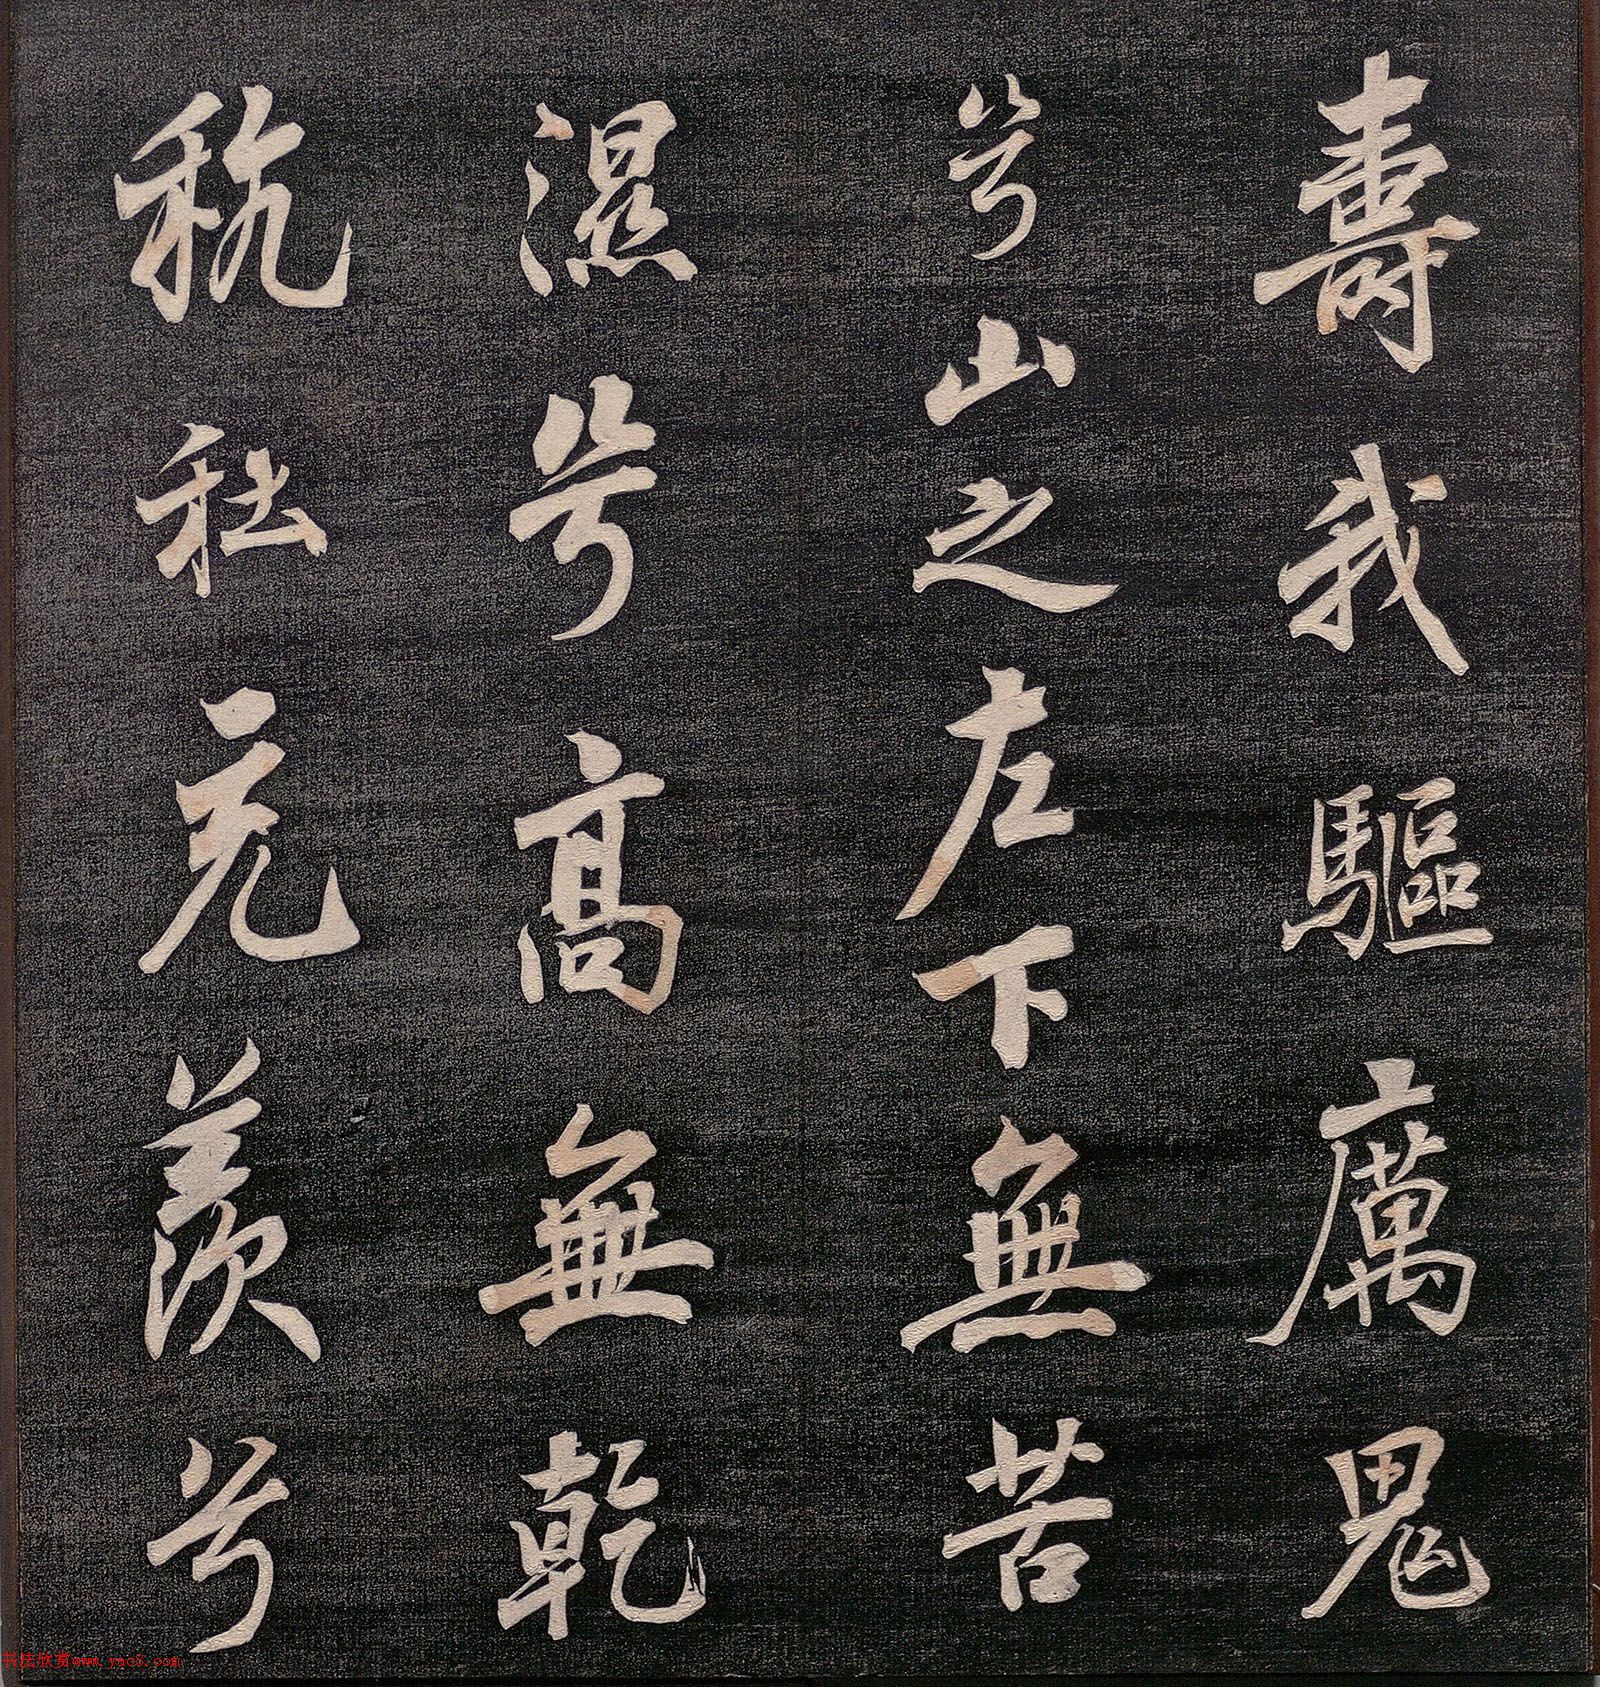 壽我驅厲鬼
兮山之左下無苦
濕兮高無乾
秔秫充羡兮
书法欣赏www.yac8.com